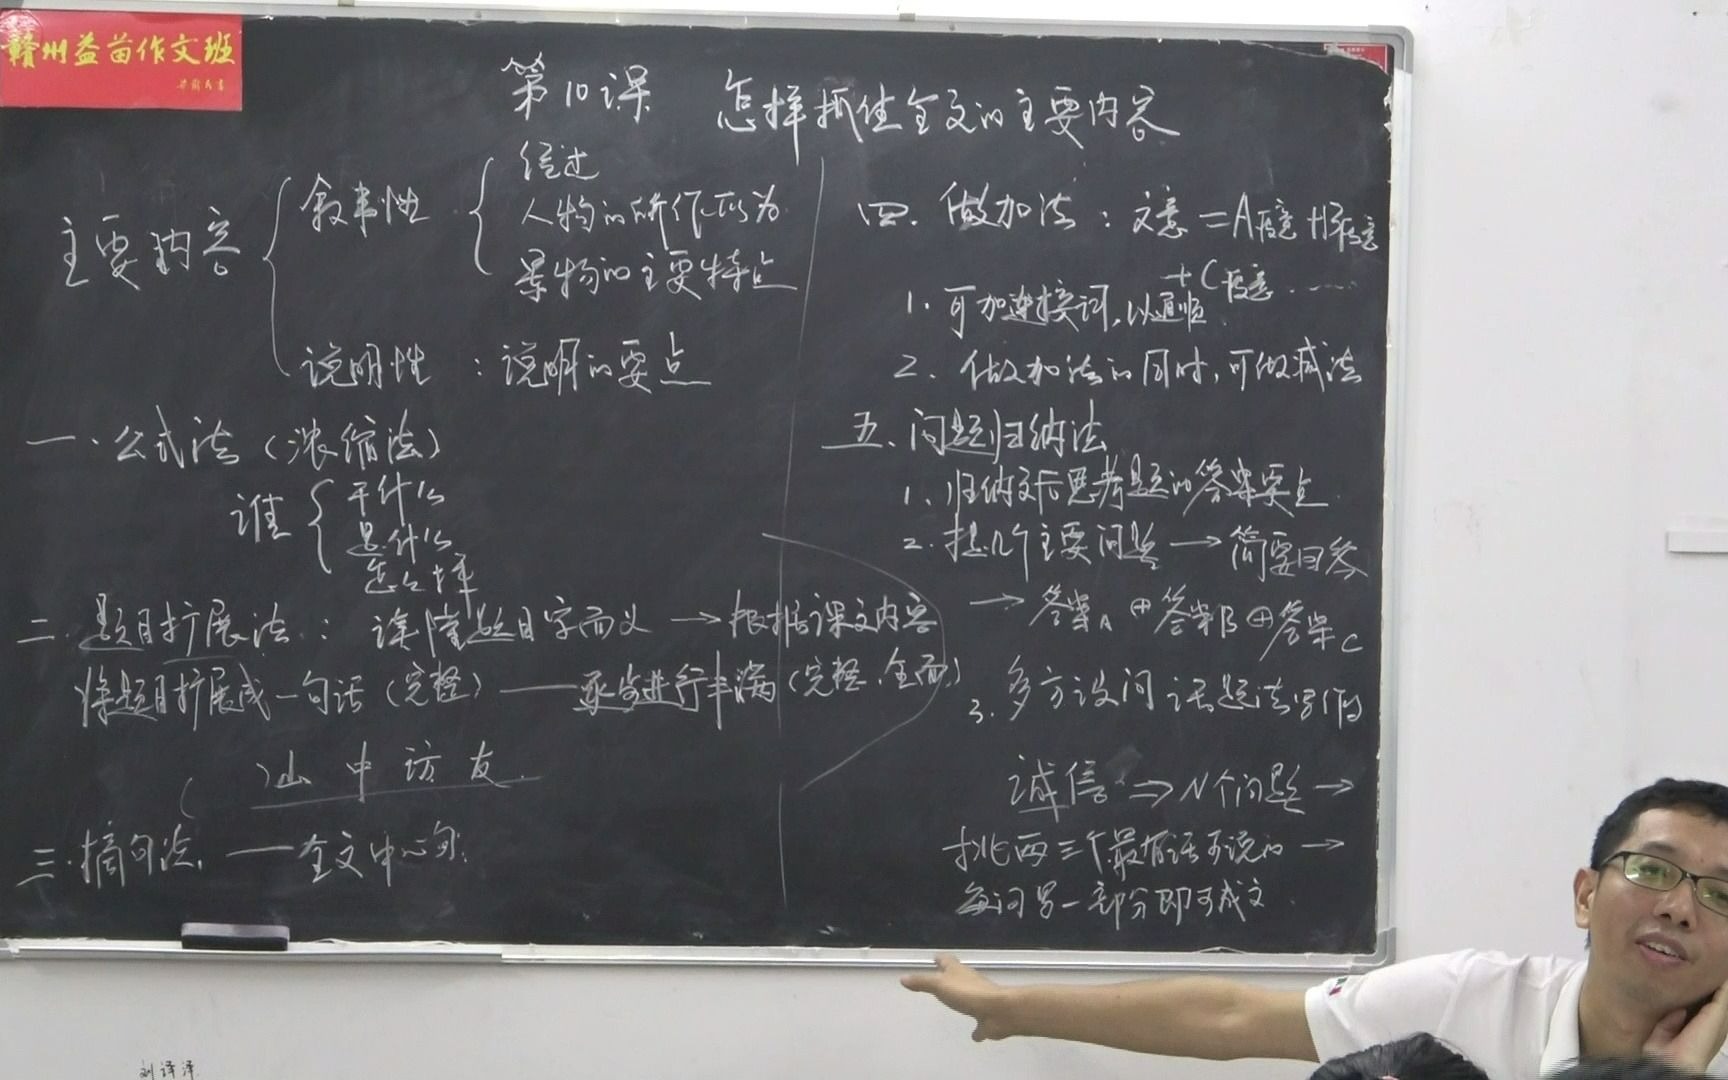 赣州益苗作文班
第10课 怎样抓住全文的主要内容
主要内容
叙事性
经过
人物的所作所为
景物的主要特点
说明性：说明的要点
一.公式法（浓缩法）
谁
干什么
是什么
怎么样
二.题目扩展法：读懂题目字面义→根据课文内容
将题目扩展成一句话（完整）——逐步进行丰满（完整、全面）
（ ）山中访友
三.摘句法.——全文中心句.
四.做加法：文意=A段意+B段意
+C段意……
1.可加连接词,以通顺.
2.做加法的同时,可做减法
五.问题归纳法
1.归纳文后思考题的答案要点
2.提几个主要问题→简要回答
→答案A⊕答案B⊕答案C
3.多方设问话题法写作
诚信⇒N个问题→
挑两三个最有话可说的→
每问写一部分即可成文.
刘译泽